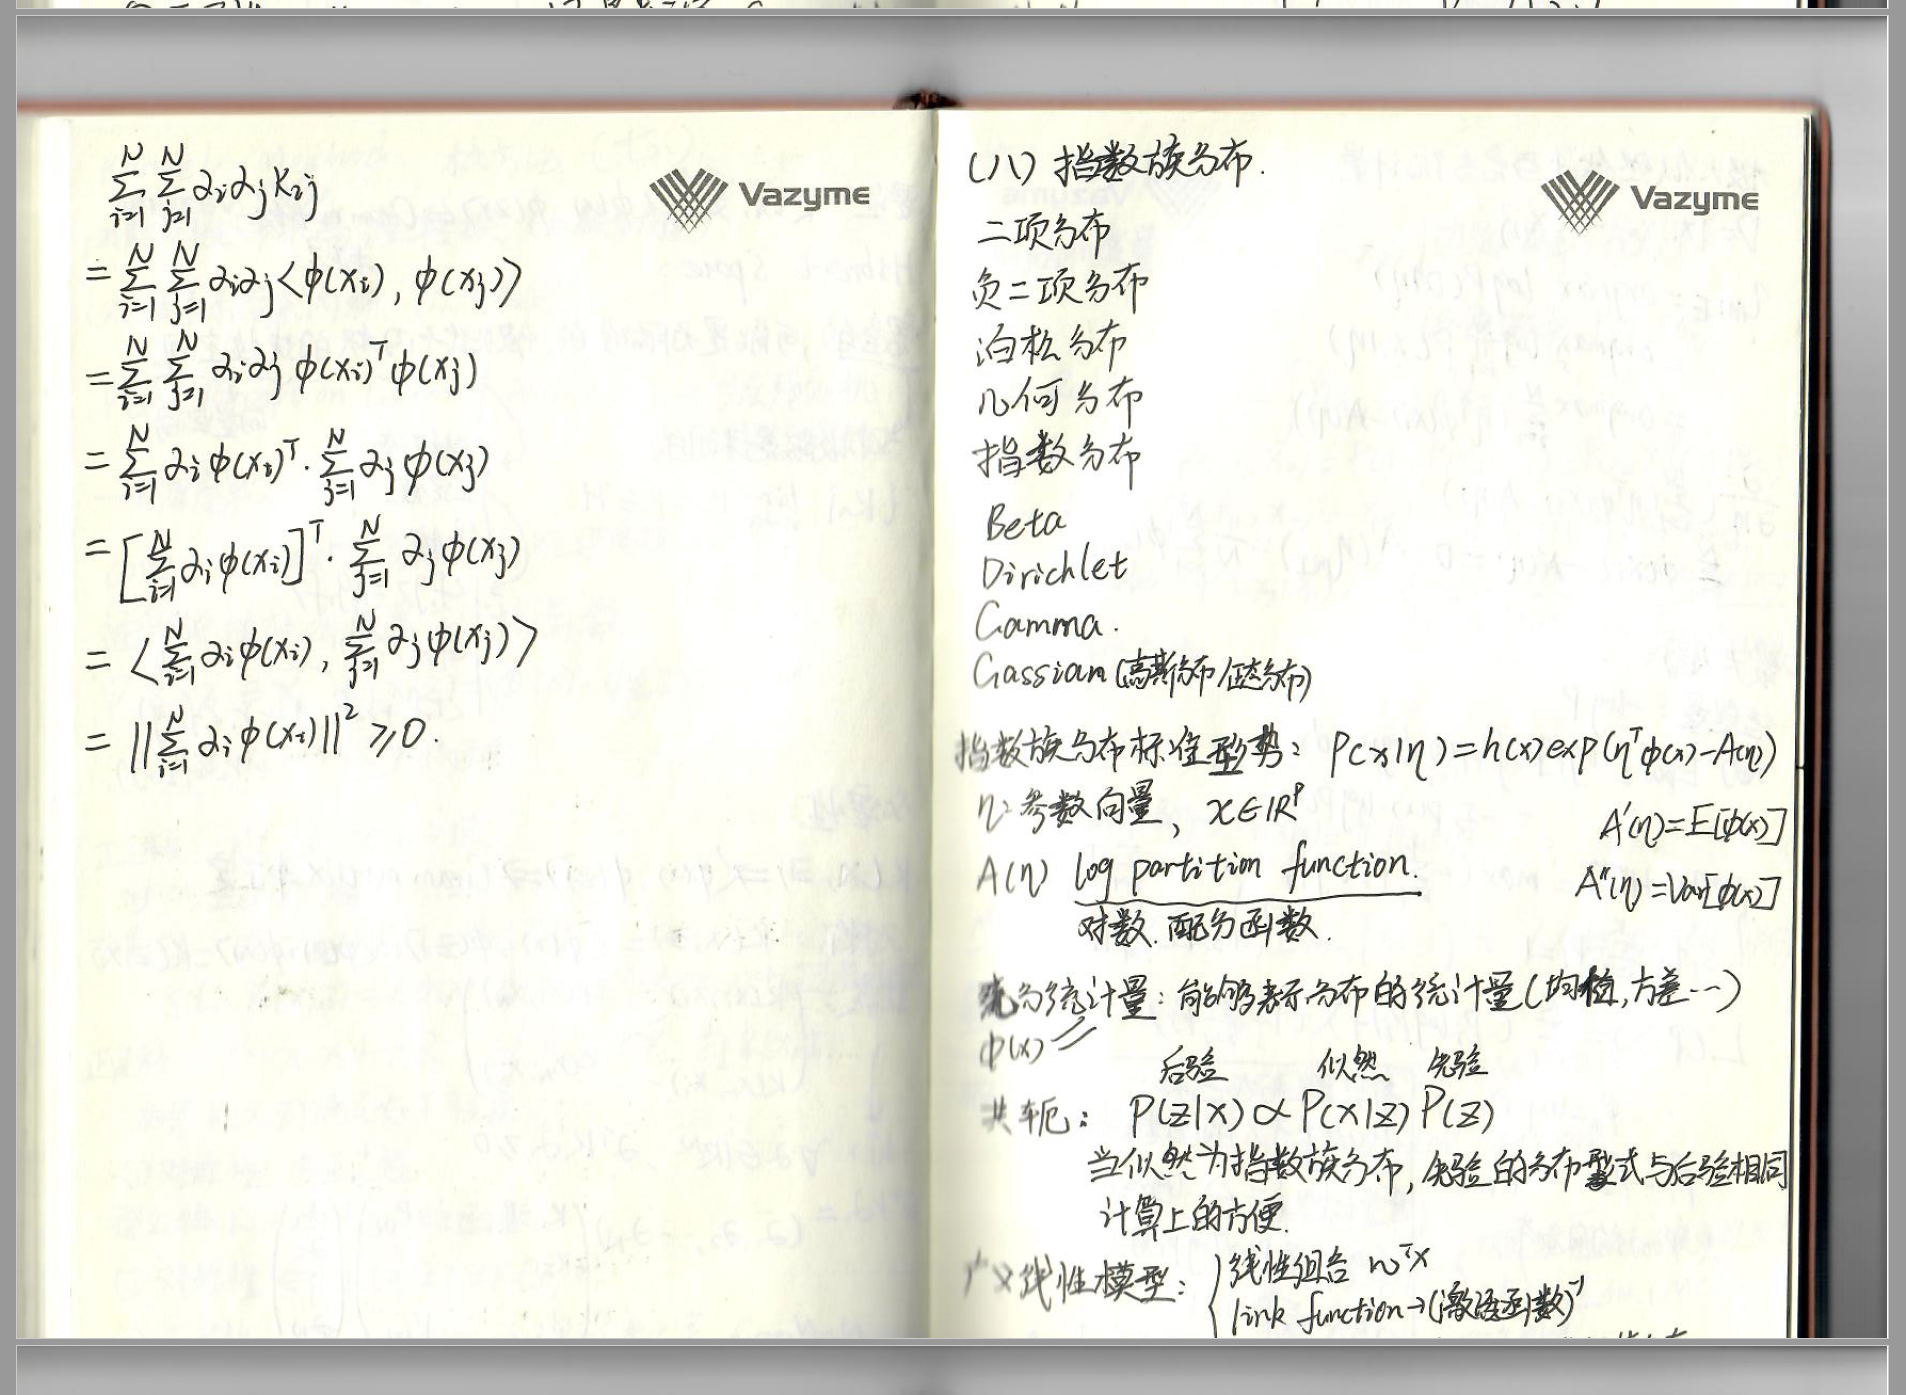 N N
∑ ∑ αiαjKij
i=1 j=1
= ∑_{i=1}^{N} ∑_{j=1}^{N} αiαj<φ(xi), φ(xj)>
= ∑_{i=1}^{N} ∑_{j=1}^{N} αiαj φ(xi)^T φ(xj)
= ∑_{i=1}^{N} αi φ(xi)^T · ∑_{j=1}^{N} αj φ(xj)
= [∑_{i=1}^{N} αi φ(xi)]^T · ∑_{j=1}^{N} αj φ(xj)
= <∑_{i=1}^{N} αi φ(xi), ∑_{j=1}^{N} αj φ(xj)>
= ||∑_{i=1}^{N} αi φ(xi)||² ⩾ 0.
Vazyme
(八) 指数族分布.
Vazyme
二项分布
负二项分布
泊松分布
几何分布
指数分布
Beta
Dirichlet
Gamma.
Gassian (高斯分布/正态分布)
指数族分布标准型势: P(x|η) = h(x) exp(η^T φ(x) - A(η))
η: 参数向量, x∈ℝ^p
A'(η) = E[φ(x)]
A(η) log partition function.
A''(η) = Var[φ(x)]
对数.配分函数.
充分统计量: 能够表示分布的统计量(均值,方差…)
φ(x)
后验 似然 先验
共轭: P(z|x) ∝ P(x|z) P(z)
当似然为指数族分布, 先验的分布形式与后验相同
计算上的方便.
广义线性模型: { 线性组合 w^T x
link function → (激活函数)^{-1}